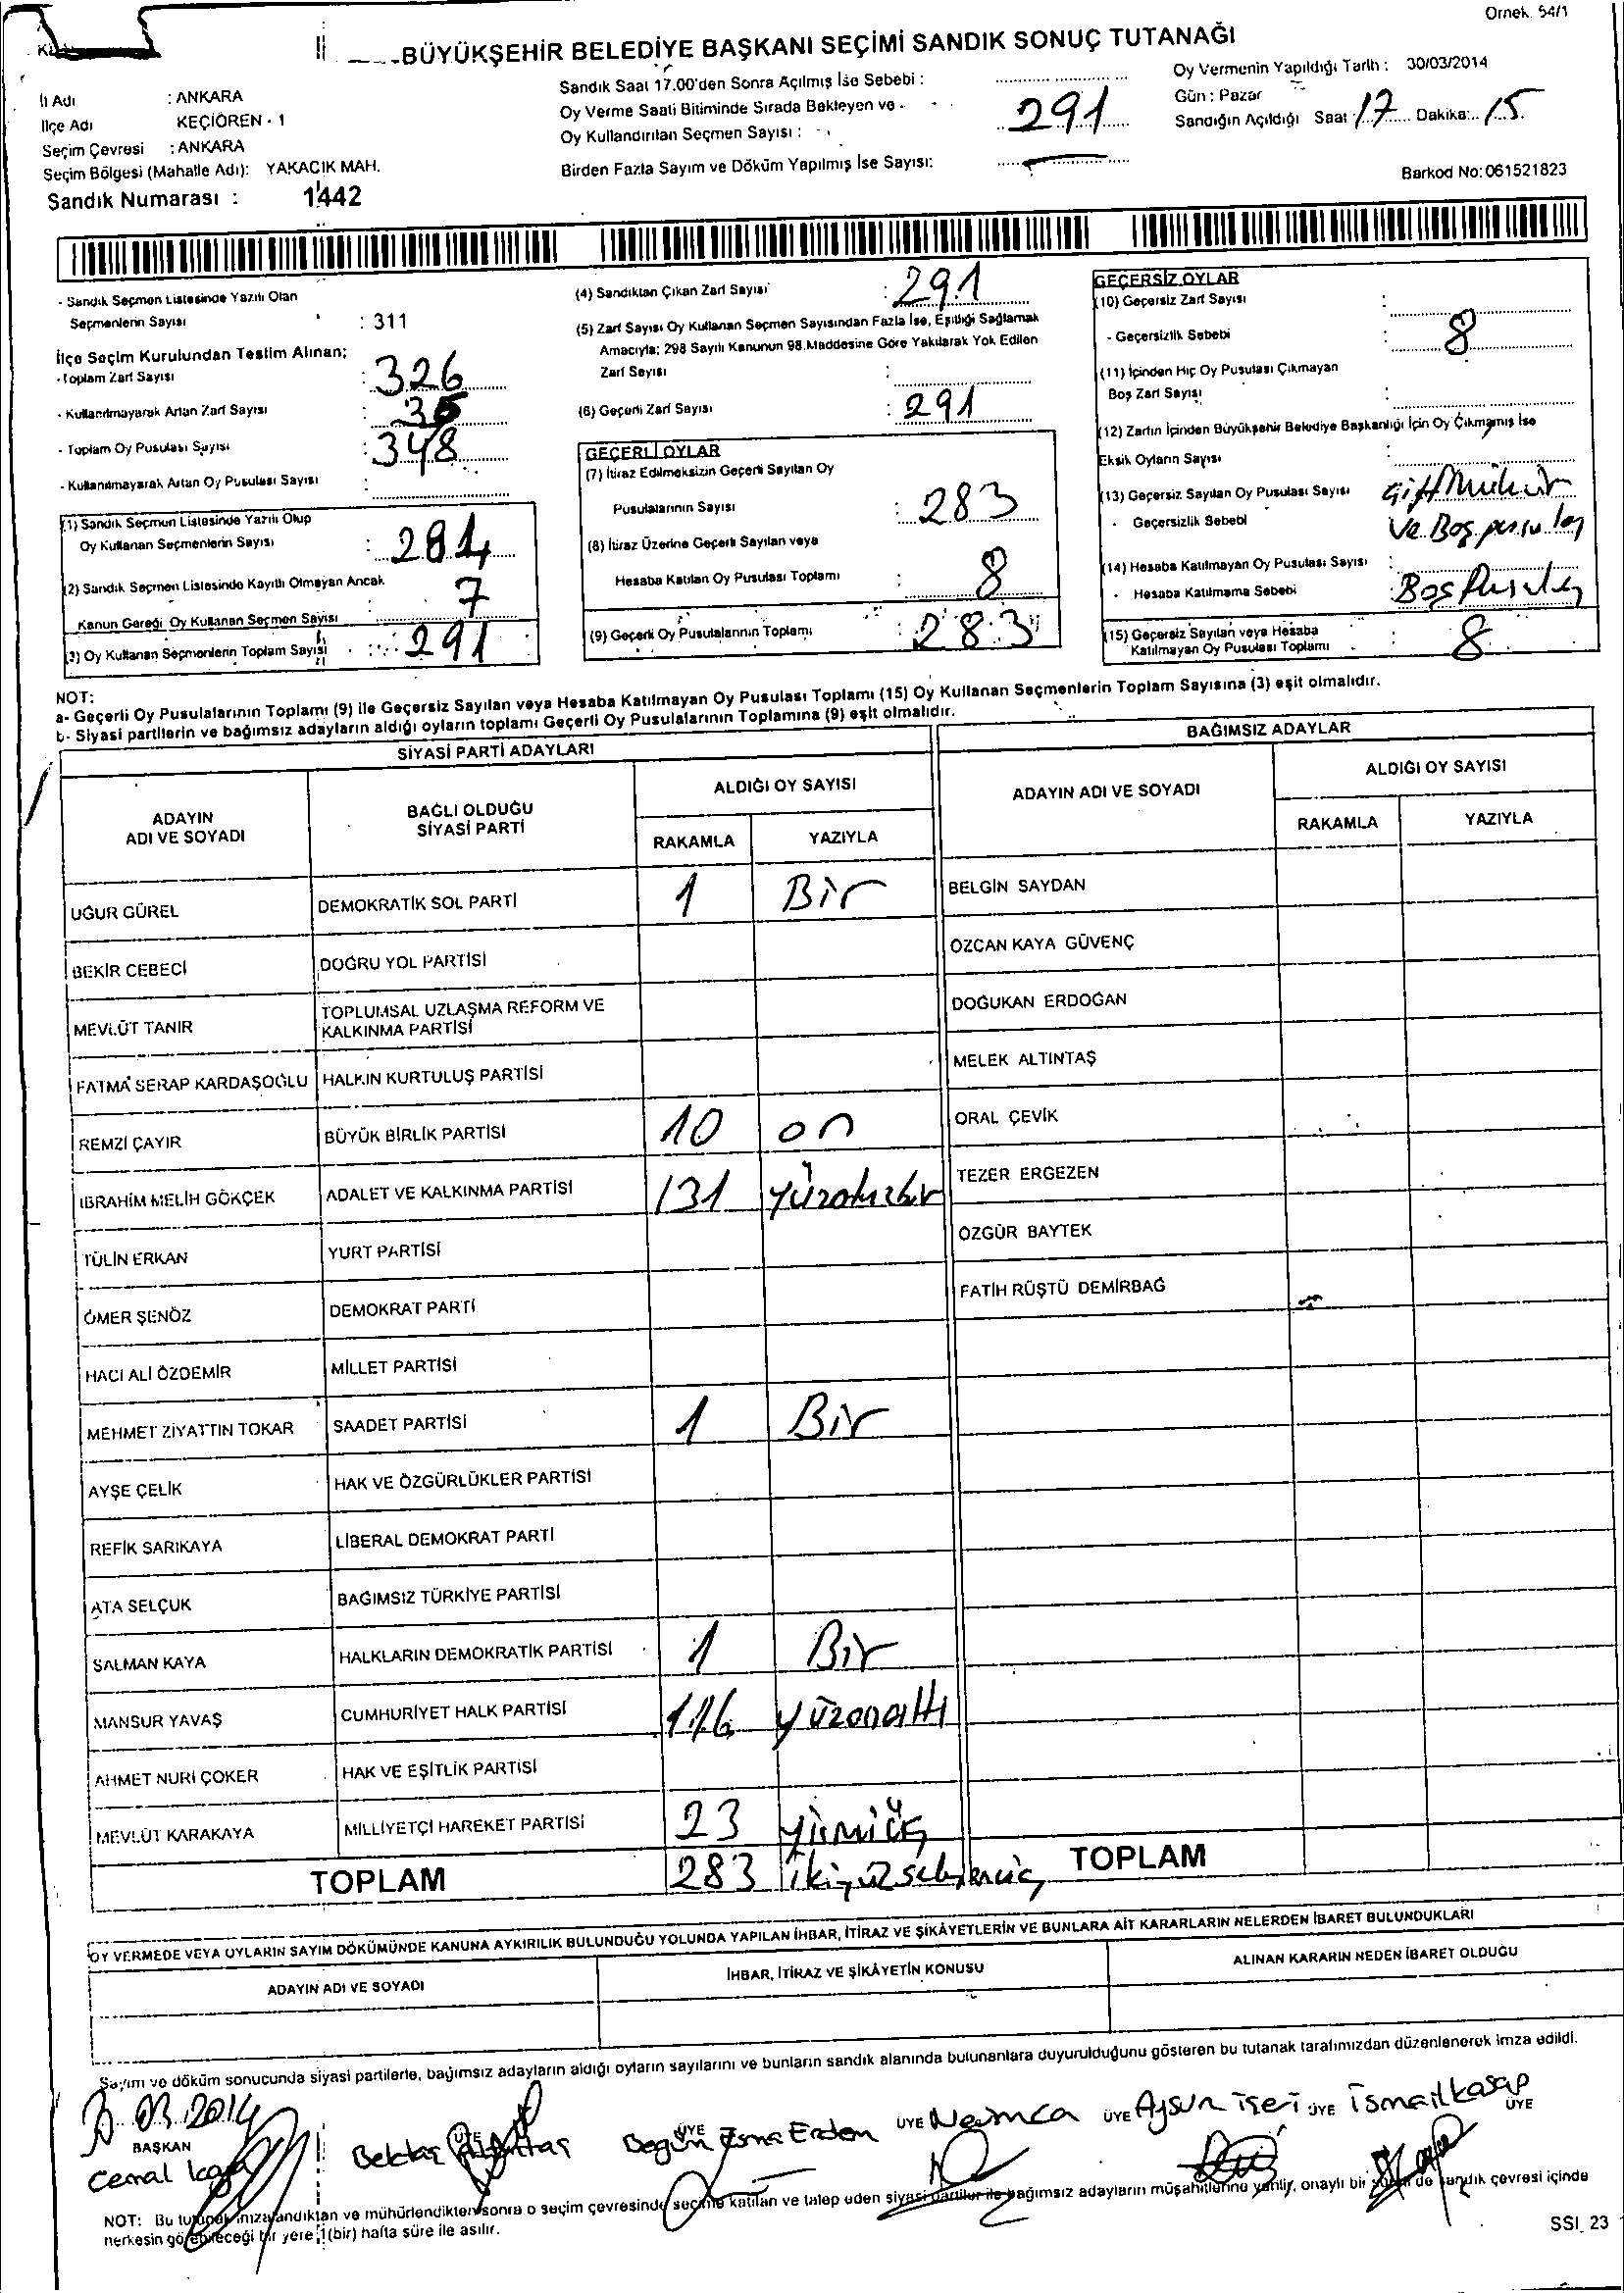 Örnek. 54/1
BÜYÜKŞEHİR BELEDİYE BAŞKANI SEÇİMİ SANDIK SONUÇ TUTANAĞI
İl Adı : ANKARA
İlçe Adı KEÇİÖREN - 1
Seçim Çevresi : ANKARA
Seçim Bölgesi (Mahalle Adı): YAKACIK MAH.
Sandık Numarası : 1442
Sandık Saat 17.00'den Sonra Açılmış İse Sebebi :
Oy Verme Saati Bitiminde Sırada Bekleyen ve
Oy Kullandırılan Seçmen Sayısı : 291
Birden Fazla Sayım ve Döküm Yapılmış İse Sayısı:
Oy Vermenin Yapıldığı Tarih : 30/03/2014
Gün : Pazar
Sandığın Açıldığı Saat : 17 Dakika: 15
Barkod No: 061521823
- Sandık Seçmen Listesinde Yazılı Olan
Seçmenlerin Sayısı : 311
İlçe Seçim Kurulundan Teslim Alınan;
- Toplam Zarf Sayısı : 326
- Kullanılmayarak Artan Zarf Sayısı : 35
- Toplam Oy Pusulası Sayısı : 348
- Kullanılmayarak Artan Oy Pusulası Sayısı :
(1) Sandık Seçmen Listesinde Yazılı Olup
Oy Kullanan Seçmenlerin Sayısı : 284
(2) Sandık Seçmen Listesinde Kayıtlı Olmayan Ancak
Kanun Gereği Oy Kullanan Seçmen Sayısı : 7
(3) Oy Kullanan Seçmenlerin Toplam Sayısı : 291
(4) Sandıktan Çıkan Zarf Sayısı : 291
(5) Zarf Sayısı Oy Kullanan Seçmen Sayısından Fazla İse, Eşitliği Sağlamak
Amacıyla; 298 Sayılı Kanunun 98.Maddesine Göre Yakılarak Yok Edilen
Zarf Sayısı :
(6) Geçerli Zarf Sayısı : 291
GEÇERLİ OYLAR
(7) İtiraz Edilmeksizin Geçerli Sayılan Oy
Pusulalarının Sayısı : 283
(8) İtiraz Üzerine Geçerli Sayılan veya
Hesaba Katılan Oy Pusulası Toplamı : 8
(9) Geçerli Oy Pusulalarının Toplamı : 283
GEÇERSİZ OYLAR
(10) Geçersiz Zarf Sayısı :
- Geçersizlik Sebebi : 8
(11) İçinden Hiç Oy Pusulası Çıkmayan
Boş Zarf Sayısı :
(12) Zarfın İçinden Büyükşehir Belediye Başkanlığı İçin Oy Çıkmamış İse
Eksik Oyların Sayısı
(13) Geçersiz Sayılan Oy Pusulası Sayısı Çift Mühür
- Geçersizlik Sebebi ve Boş pusulas
(14) Hesaba Katılmayan Oy Pusulası Sayısı :
- Hesaba Katılmama Sebebi : Boş Pusulas
(15) Geçersiz Sayılan veya Hesaba
Katılmayan Oy Pusulası Toplamı : 8
NOT:
a- Geçerli Oy Pusulalarının Toplamı (9) ile Geçersiz Sayılan veya Hesaba Katılmayan Oy Pusulası Toplamı (15) Oy Kullanan Seçmenlerin Toplam Sayısına (3) eşit olmalıdır.
b- Siyasi partilerin ve bağımsız adayların aldığı oyların toplamı Geçerli Oy Pusulalarının Toplamına (9) eşit olmalıdır.
SİYASİ PARTİ ADAYLARI BAĞIMSIZ ADAYLAR
ADAYIN ADI VE SOYADI BAĞLI OLDUĞU SİYASİ PARTİ ALDIĞI OY SAYISI ADAYIN ADI VE SOYADI ALDIĞI OY SAYISI
RAKAMLA YAZIYLA RAKAMLA YAZIYLA
UĞUR GÜREL DEMOKRATİK SOL PARTİ 1 Bir BELGİN SAYDAN
BEKİR CEBECİ DOĞRU YOL PARTİSİ ÖZCAN KAYA GÜVENÇ
MEVLÜT TANIR TOPLUMSAL UZLAŞMA REFORM VE KALKINMA PARTİSİ DOĞUKAN ERDOĞAN
FATMA SERAP KARDAŞOĞLU HALKIN KURTULUŞ PARTİSİ MELEK ALTINTAŞ
REMZİ ÇAYIR BÜYÜK BİRLİK PARTİSİ 10 on ORAL ÇEVİK
İBRAHİM MELİH GÖKÇEK ADALET VE KALKINMA PARTİSİ 131 yüzotuzbir TEZER ERGEZEN
TÜLİN ERKAN YURT PARTİSİ ÖZGÜR BAYTEK
ÖMER ŞENÖZ DEMOKRAT PARTİ FATİH RÜŞTÜ DEMİRBAĞ
HACI ALİ ÖZDEMİR MİLLET PARTİSİ
MEHMET ZİYATTIN TOKAR SAADET PARTİSİ 1 Bir
AYŞE ÇELİK HAK VE ÖZGÜRLÜKLER PARTİSİ
REFİK SARIKAYA LİBERAL DEMOKRAT PARTİ
ATA SELÇUK BAĞIMSIZ TÜRKİYE PARTİSİ
SALMAN KAYA HALKLARIN DEMOKRATİK PARTİSİ 1 Bir
MANSUR YAVAŞ CUMHURİYET HALK PARTİSİ 116 yüzonaltı
AHMET NURİ ÇOKER HAK VE EŞİTLİK PARTİSİ
MEVLÜT KARAKAYA MİLLİYETÇİ HAREKET PARTİSİ 23 yirmiüç
TOPLAM 283 ikiyüzseksenüç TOPLAM
OY VERMEDE VEYA OYLARIN SAYIM DÖKÜMÜNDE KANUNA AYKIRILIK BULUNDUĞU YOLUNDA YAPILAN İHBAR, İTİRAZ VE ŞİKÂYETLERİN VE BUNLARA AİT KARARLARIN NELERDEN İBARET BULUNDUKLARI
ADAYIN ADI VE SOYADI İHBAR, İTİRAZ VE ŞİKÂYETİN KONUSU ALINAN KARARIN NEDEN İBARET OLDUĞU
Sayım ve döküm sonucunda siyasi partilerle, bağımsız adayların aldığı oyların sayılarını ve bunların sandık alanında bulunanlara duyurulduğunu gösteren bu tutanak tarafımızdan düzenlenerek imza edildi.
03.2014
BAŞKAN ÜYE ÜYE ÜYE ÜYE ÜYE ÜYE
Cemal Bektaş Begün Esma Erdem Aysun İsmail Kasap
NOT: Bu tutanak imzalandıktan ve mühürlendikten sonra o seçim çevresinde seçime katılan ve talep eden siyasi partiler ile bağımsız adayların müşahitlerine verilir, onaylı bir sureti de sandık çevresi içinde
herkesin görebileceği bir yere 1 (bir) hafta süre ile asılır.
SSI_23